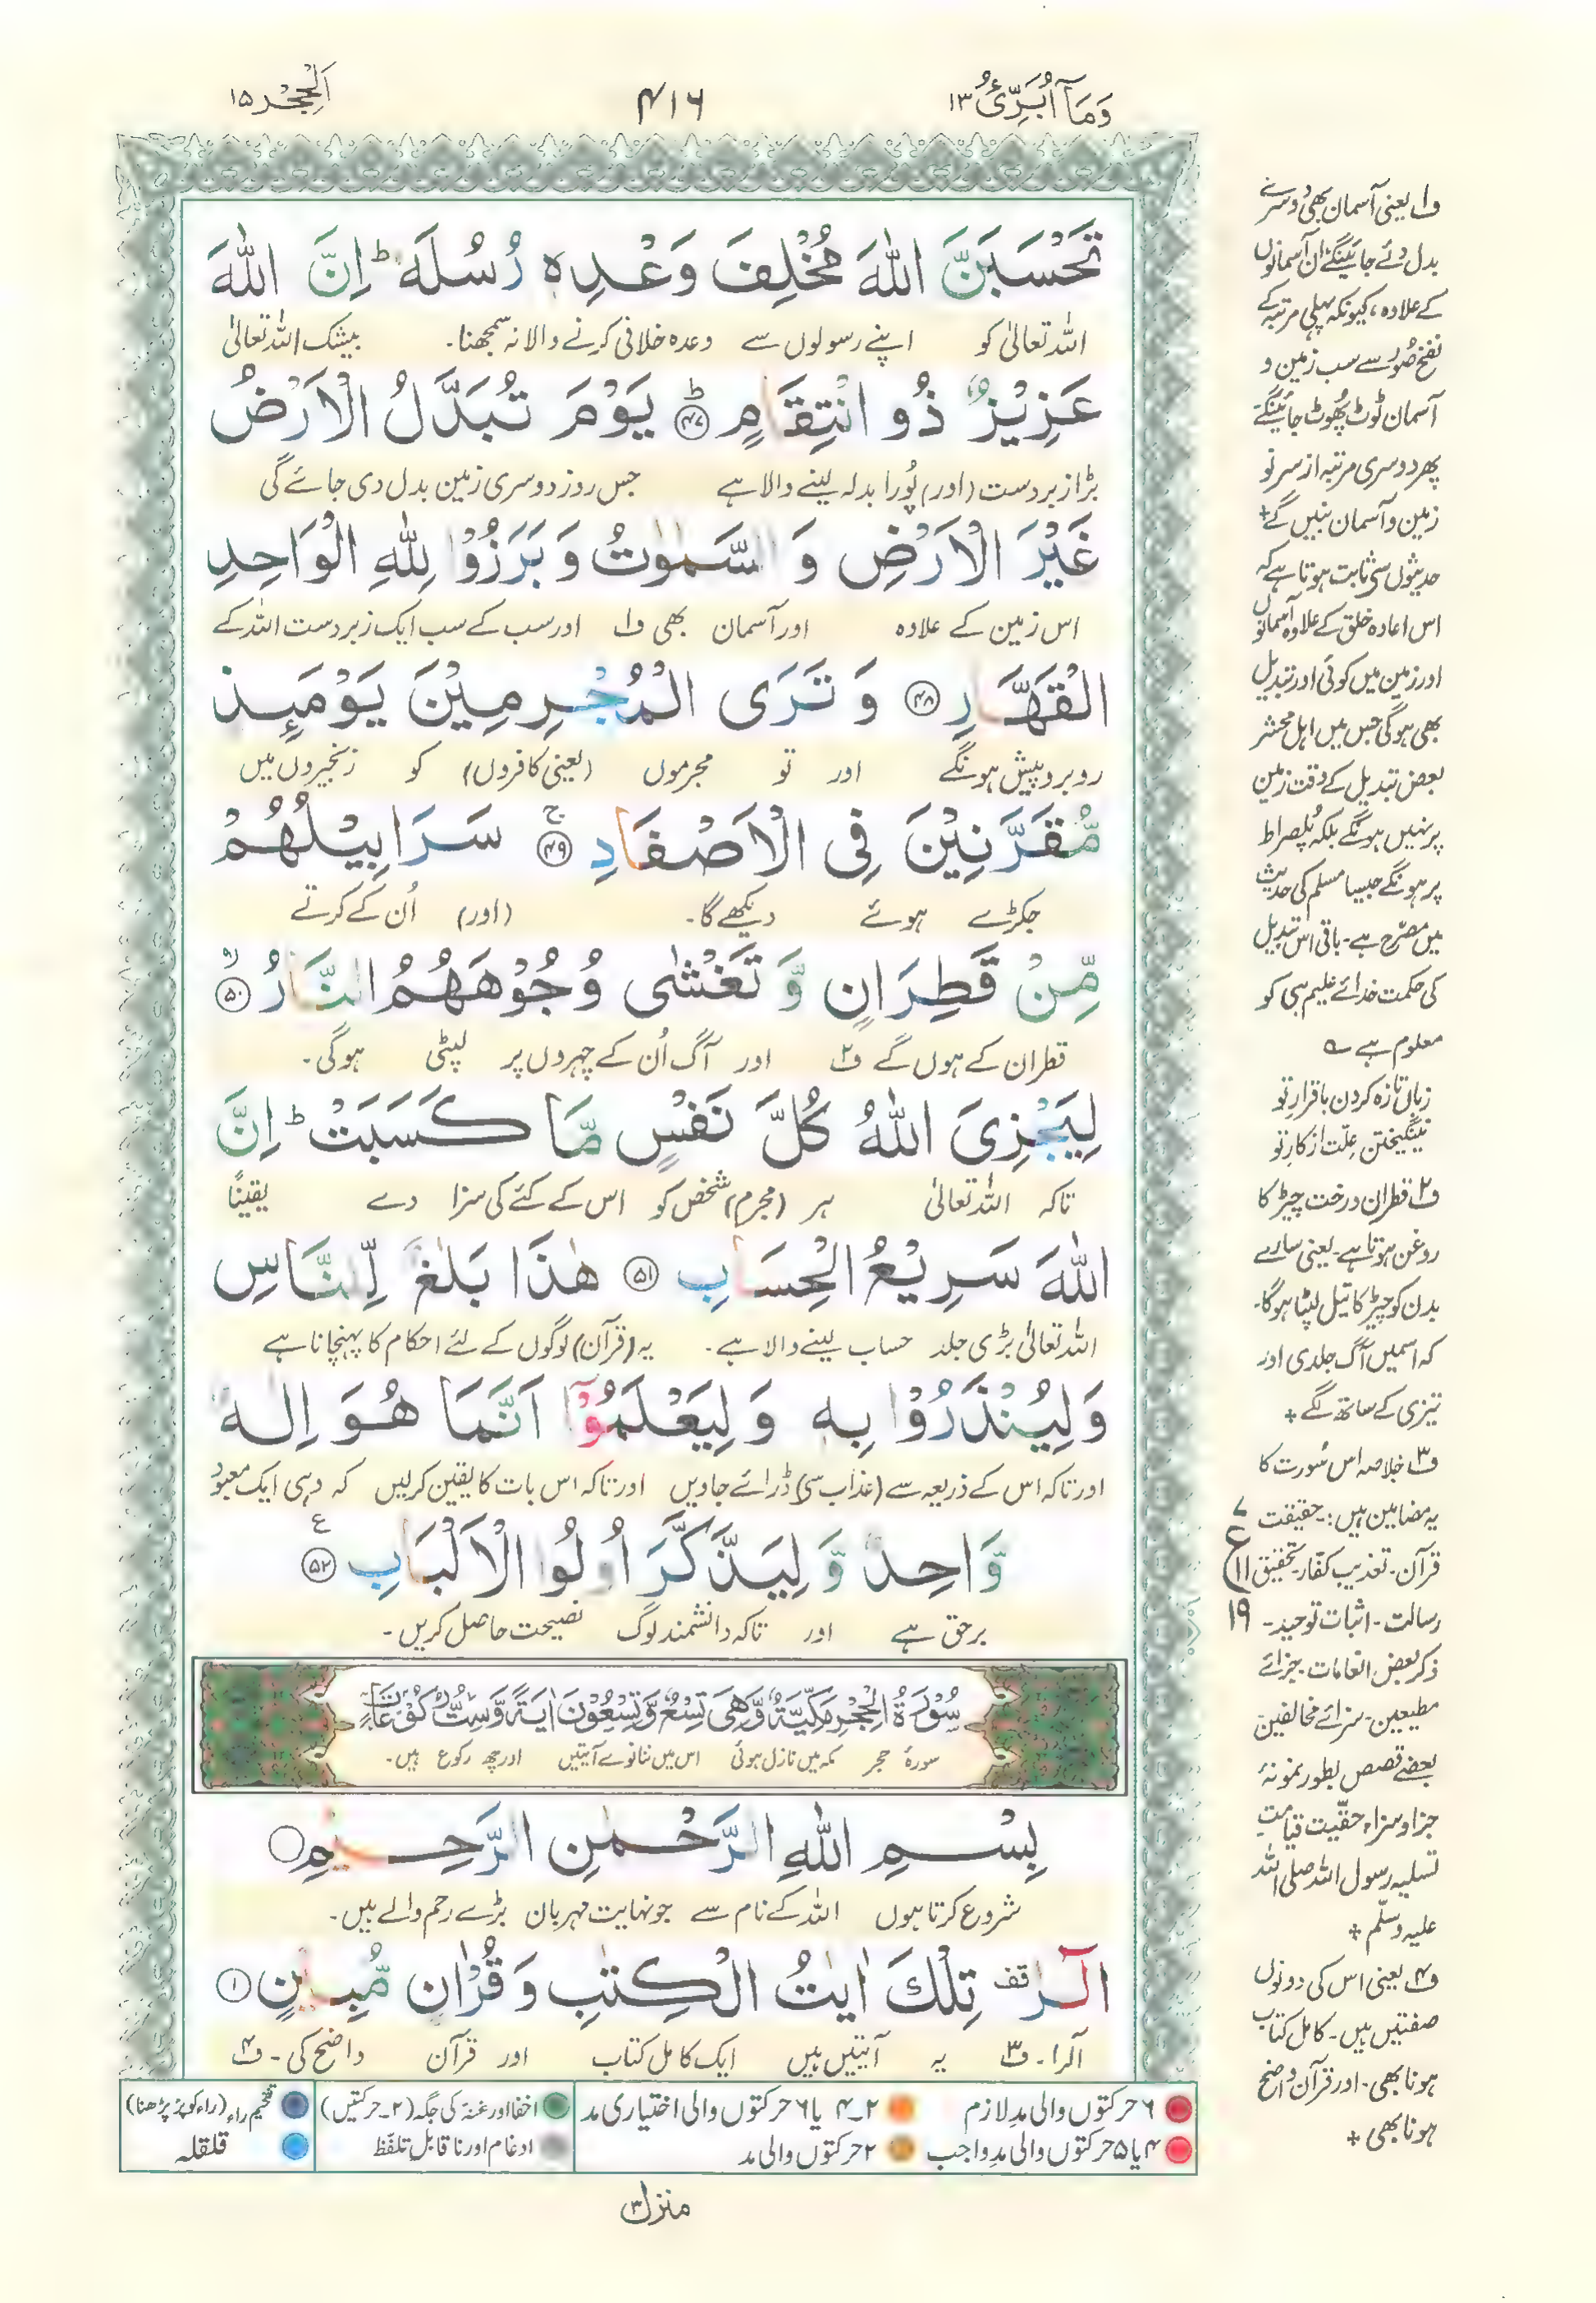 وَمَآ اُبَرِّئُ ۱۳
۴۱۶
اَلْحِجْر ۱۵
تَحْسَبَنَّ اللّٰهَ مُخْلِفَ وَعْدِهٖ رُسُلَهٗ ؕ اِنَّ اللّٰهَ
اللہ تعالیٰ کو اپنے رسولوں سے وعدہ خلافی کرنے والا نہ سمجھنا۔ بیشک اللہ تعالیٰ
عَزِيْزٌ ذُو انْتِقَامٍ ؕ ﴿۴۷﴾ يَوْمَ تُبَدَّلُ الْاَرْضُ
بڑا زبردست (اور) پُورا بدلہ لینے والا ہے جس روز دوسری زمین بدل دی جائے گی
غَيْرَ الْاَرْضِ وَ السَّمٰوٰتُ وَ بَرَزُوْا لِلّٰهِ الْوَاحِدِ
اس زمین کے علاوہ اور آسمان بھی ف۱ اور سب کے سب ایک زبردست اللہ کے
الْقَهَّارِ ﴿۴۸﴾ وَ تَرَى الْمُجْرِمِيْنَ يَوْمَىِٕذٍ
روبرو پیش ہونگے اور تو مجرموں (یعنی کافروں) کو زنجیروں میں
مُّقَرَّنِيْنَ فِى الْاَصْفَادِ ۚ ﴿۴۹﴾ سَرَابِيْلُهُمْ
جکڑے ہوئے دیکھے گا۔ (اور) اُن کے کرتے
مِّنْ قَطِرَانٍ وَّ تَغْشٰى وُجُوْهَهُمُ النَّارُ ۙ ﴿۵۰﴾
قطران کے ہوں گے ف۲ اور آگ اُن کے چہروں پر لپٹی ہوگی۔
لِيَجْزِىَ اللّٰهُ كُلَّ نَفْسٍ مَّا كَسَبَتْ ؕ اِنَّ
تاکہ اللہ تعالیٰ ہر (مجرم) شخص کو اس کے کئے کی سزا دے یقینًا
اللّٰهَ سَرِيْعُ الْحِسَابِ ﴿۵۱﴾ هٰذَا بَلٰغٌ لِّلنَّاسِ
اللہ تعالیٰ بڑی جلد حساب لینے والا ہے۔ یہ (قرآن) لوگوں کے لئے احکام کا پہنچانا ہے
وَلِيُنْذَرُوْا بِهٖ وَ لِيَعْلَمُوْٓا اَنَّمَا هُوَ اِلٰهٌ
اور تاکہ اس کے ذریعہ سے (عذاب سے) ڈرائے جاویں اور تاکہ اس بات کا یقین کرلیں کہ وہی ایک معبود
وَّاحِدٌ وَّ لِيَذَّكَّرَ اُولُوا الْاَلْبَابِ ﴿۵۲﴾ ع
برحق ہے اور تاکہ دانشمند لوگ نصیحت حاصل کریں۔
سُوْرَةُ الْحِجْرِ مَكِّيَّةٌ وَّهِىَ تِسْعٌ وَّتِسْعُوْنَ اٰيَةً وَّسِتُّ رُكُوْعَاتٍ
سورۂ حجر مکہ میں نازل ہوئی اس میں ننانوے آیتیں اور چھ رکوع ہیں۔
بِسْمِ اللّٰهِ الرَّحْمٰنِ الرَّحِيْمِ
شروع کرتا ہوں اللہ کے نام سے جو نہایت مہربان بڑے رحم والے ہیں۔
الٓرٰ ۗ قف تِلْكَ اٰيٰتُ الْكِتٰبِ وَ قُرْاٰنٍ مُّبِيْنٍ ﴿۱﴾
آلرا۔ ف۳ یہ آیتیں ہیں ایک کامل کتاب اور قرآن واضح کی۔ ف۴
ف۱ یعنی آسمان بھی دوسرے
بدل دئے جائینگے ان آسمانوں
کے علاوہ، کیونکہ پہلی مرتبہ کے
نفخِ صُور سے سب زمین و
آسمان ٹوٹ پھُوٹ جائینگے
پھر دوسری مرتبہ از سر نو
زمین و آسمان بنیں گے +
حدیثوں سے ثابت ہوتا ہے کہ
اس اعادہ خلق کے علاوہ آسمانوں
اور زمین میں کوئی اور تبدیل
بھی ہوگی جس میں اہل محشر
بعض تبدیل کے وقت زمین
پر نہیں ہونگے بلکہ پُلصراط
پر ہونگے جیسا مسلم کی حدیث
میں مصرّح ہے۔ باقی اس تبدیل
کی حکمت خدائے علیم ہی کو
معلوم ہے ؎
زباں تازہ کردن باقرارِ تو
نینگیختن علّت از کارِ تو
ف۲ قطران درخت چیڑ کا
روغن ہوتا ہے۔ یعنی سارے
بدن کو چیڑ کا تیل لپٹا ہوگا۔
کہ اسمیں آگ جلدی اور
تیزی کے ساتھ لگے +
ف۳ خلاصہ اس سُورت کا
یہ مضامین ہیں:۔ حقیقت
قرآن۔ تعذیب کفّار۔ تحقیق
رسالت۔ اثبات توحید۔
ذکر بعض انعامات۔ جزائے
مطیعین۔ سزائے مخالفین
بعضے قصص بطور نمونۂ
جزا و سزا، حقّیت قیامت
تسلیہ رسول اللہ صلی اللہ
علیہ وسلّم +
ف۴ یعنی اس کی دونوں
صفتیں ہیں۔ کامل کتاب
ہونا بھی۔ اور قرآن واضح
ہونا بھی +
۷
ع ۱۱
۱۹
۶ حرکتوں والی مدِ لازم
۲۔۴ یا ۶ حرکتوں والی اختیاری مد
اخفا اور غنہ کی جگہ (۲۔حرکتیں)
تفخیم راء (راء کو پُر پڑھنا)
۴ یا ۵ حرکتوں والی مدِ واجب
۲ حرکتوں والی مد
ادغام اور ناقابلِ تلفّظ
قلقلہ
منزل ۳